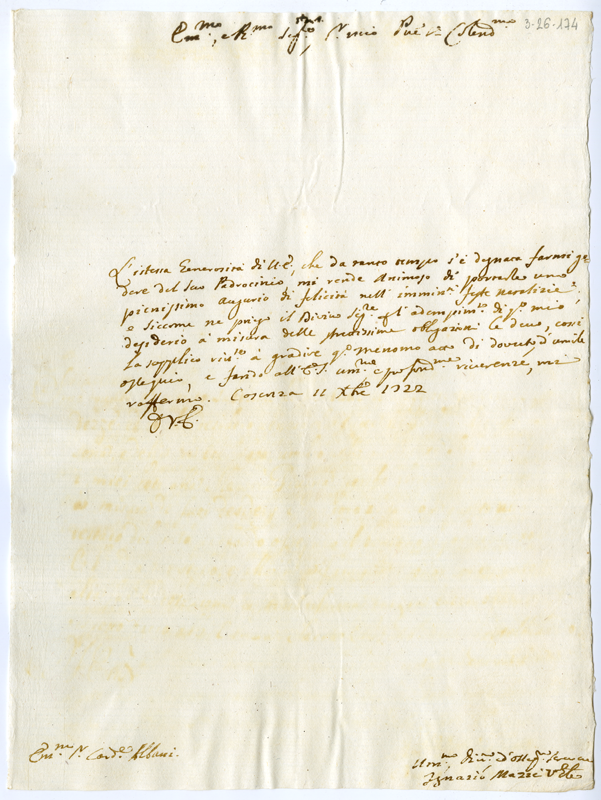 3-26-174
Em.mo, e R.mo Sig.re, Sig.r mio P̃ne Colend.mo
L'istessa Generosità di V.E., che da tanto tempo s'è degnata farmi go
dere del suo Padrocinio, mi rende Animoso di portarle uno
pienissimo augurio di felicità nell'immin.ti feste natalizie,
e siccome ne priego il Divino Sig.re gl'adempim.ti di q.to mio
desiderio à misura delle strettissime obligazioni le devo, così
La supplico à gradire q.to menomo atto di dovuto, ed umile
ossequio, e facendo all'E.V. um.me e profond.me riverenze, mi
raffermo. Cosenza 11 Xbre 1722
D.V.E.
Em.mo Sig.r Card.e Albani.
Um.mo Di.mo ed Osseq.mo Servitore
Ignazio